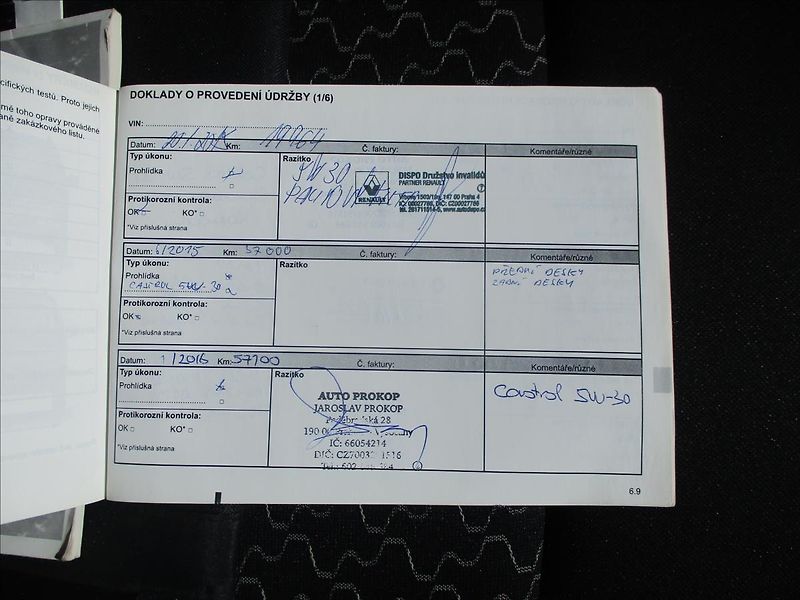 cifických testů. Proto jejich
mé toho opravy prováděné
ané zakázkového listu.
DOKLADY O PROVEDENÍ ÚDRŽBY (1/6)
VIN:
Datum: Km: 19964 Č. faktury: Komentáře/různé
Typ úkonu:
Prohlídka
Protikorozní kontrola:
OK KO*
*Viz příslušná strana
Razítko
5W30
RENAULT
DISPO Družstvo invalidů
PARTNER RENAULT
Datum: 6/2015 Km: 57000 Č. faktury: Komentáře/různé
Typ úkonu:
Prohlídka
CASTROL 5W-30
Protikorozní kontrola:
OK KO*
*Viz příslušná strana
Razítko
PŘEDNÍ DESKY
ZADNÍ DESKY
Datum: 1/2016 Km: 57100 Č. faktury: Komentáře/různé
Typ úkonu:
Prohlídka
Protikorozní kontrola:
OK KO*
*Viz příslušná strana
Razítko
AUTO PROKOP
JAROSLAV PROKOP
IČ: 66054214
Castrol 5W-30
6.9